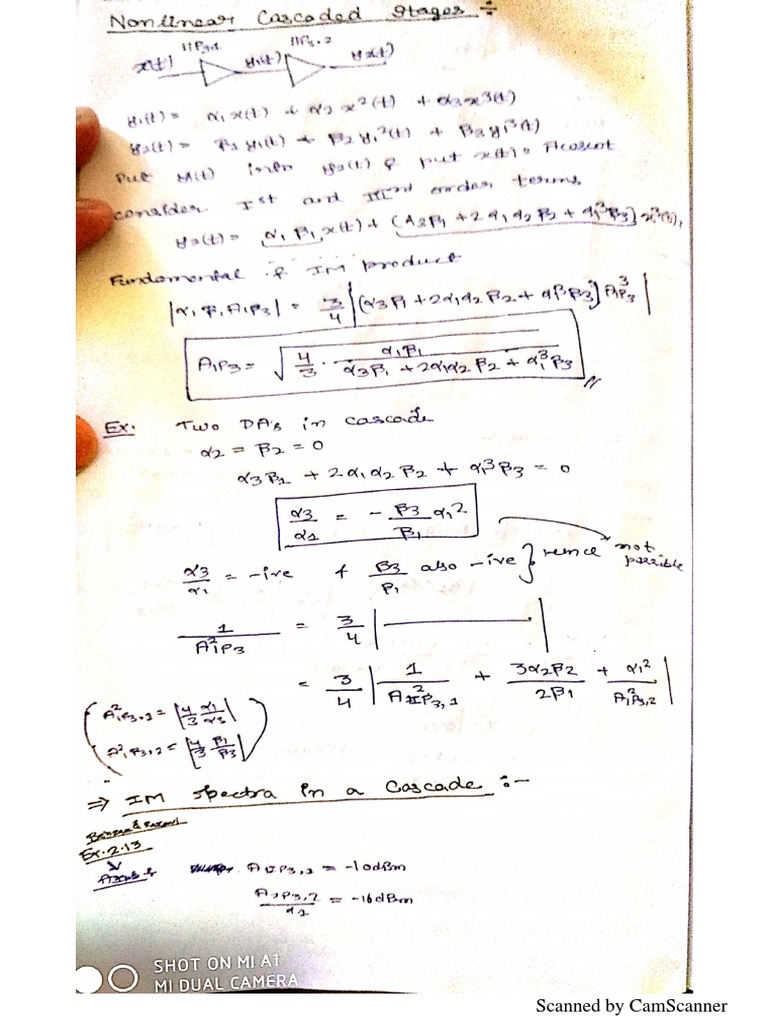 Nonlinear Cascaded Stages :-
IIP3,1 IIP3,2
x(t) y1(t) y2(t)
y1(t) = α1 x(t) + α2 x²(t) + α3 x³(t)
y2(t) = β1 y1(t) + β2 y1²(t) + β3 y1³(t)
Put y1(t) into y2(t) & put x(t) = Acosωt
consider Ist and IIIrd order terms
y2(t) = α1 β1 x(t) + (α3β1 + 2α1α2β2 + α1³β3) x³(t),
Fundamental & IM product
|α1 β1 AIP3| = 3/4 |(α3β1 + 2α1α2β2 + α1³β3) AIP3³|
AIP3 = √(4/3 · α1β1 / (α3β1 + 2α1α2β2 + α1³β3))
Ex: Two DAs in cascade
α2 = β2 = 0
α3β1 + 2α1α2β2 + α1³β3 = 0
α3/α1 = - β3/β1 α1²
α3/α1 = -ive & β3/β1 also -ive } hence not possible
1/A²IP3 = 3/4 | ——— |
= 3/4 | 1/A²IIP3,1 + 3α2β2/2β1 + α1²/A²IP3,2 |
A²IP3,1 = |4/3 α1/α3|
A²IP3,2 = |4/3 β1/β3|
⇒ IM Spectra in a Cascade :-
Ex. 2.13
AIP3,1 = -10dBm
AIP3,2/α1 = -16dBm
SHOT ON MI A1
MI DUAL CAMERA
Scanned by CamScanner